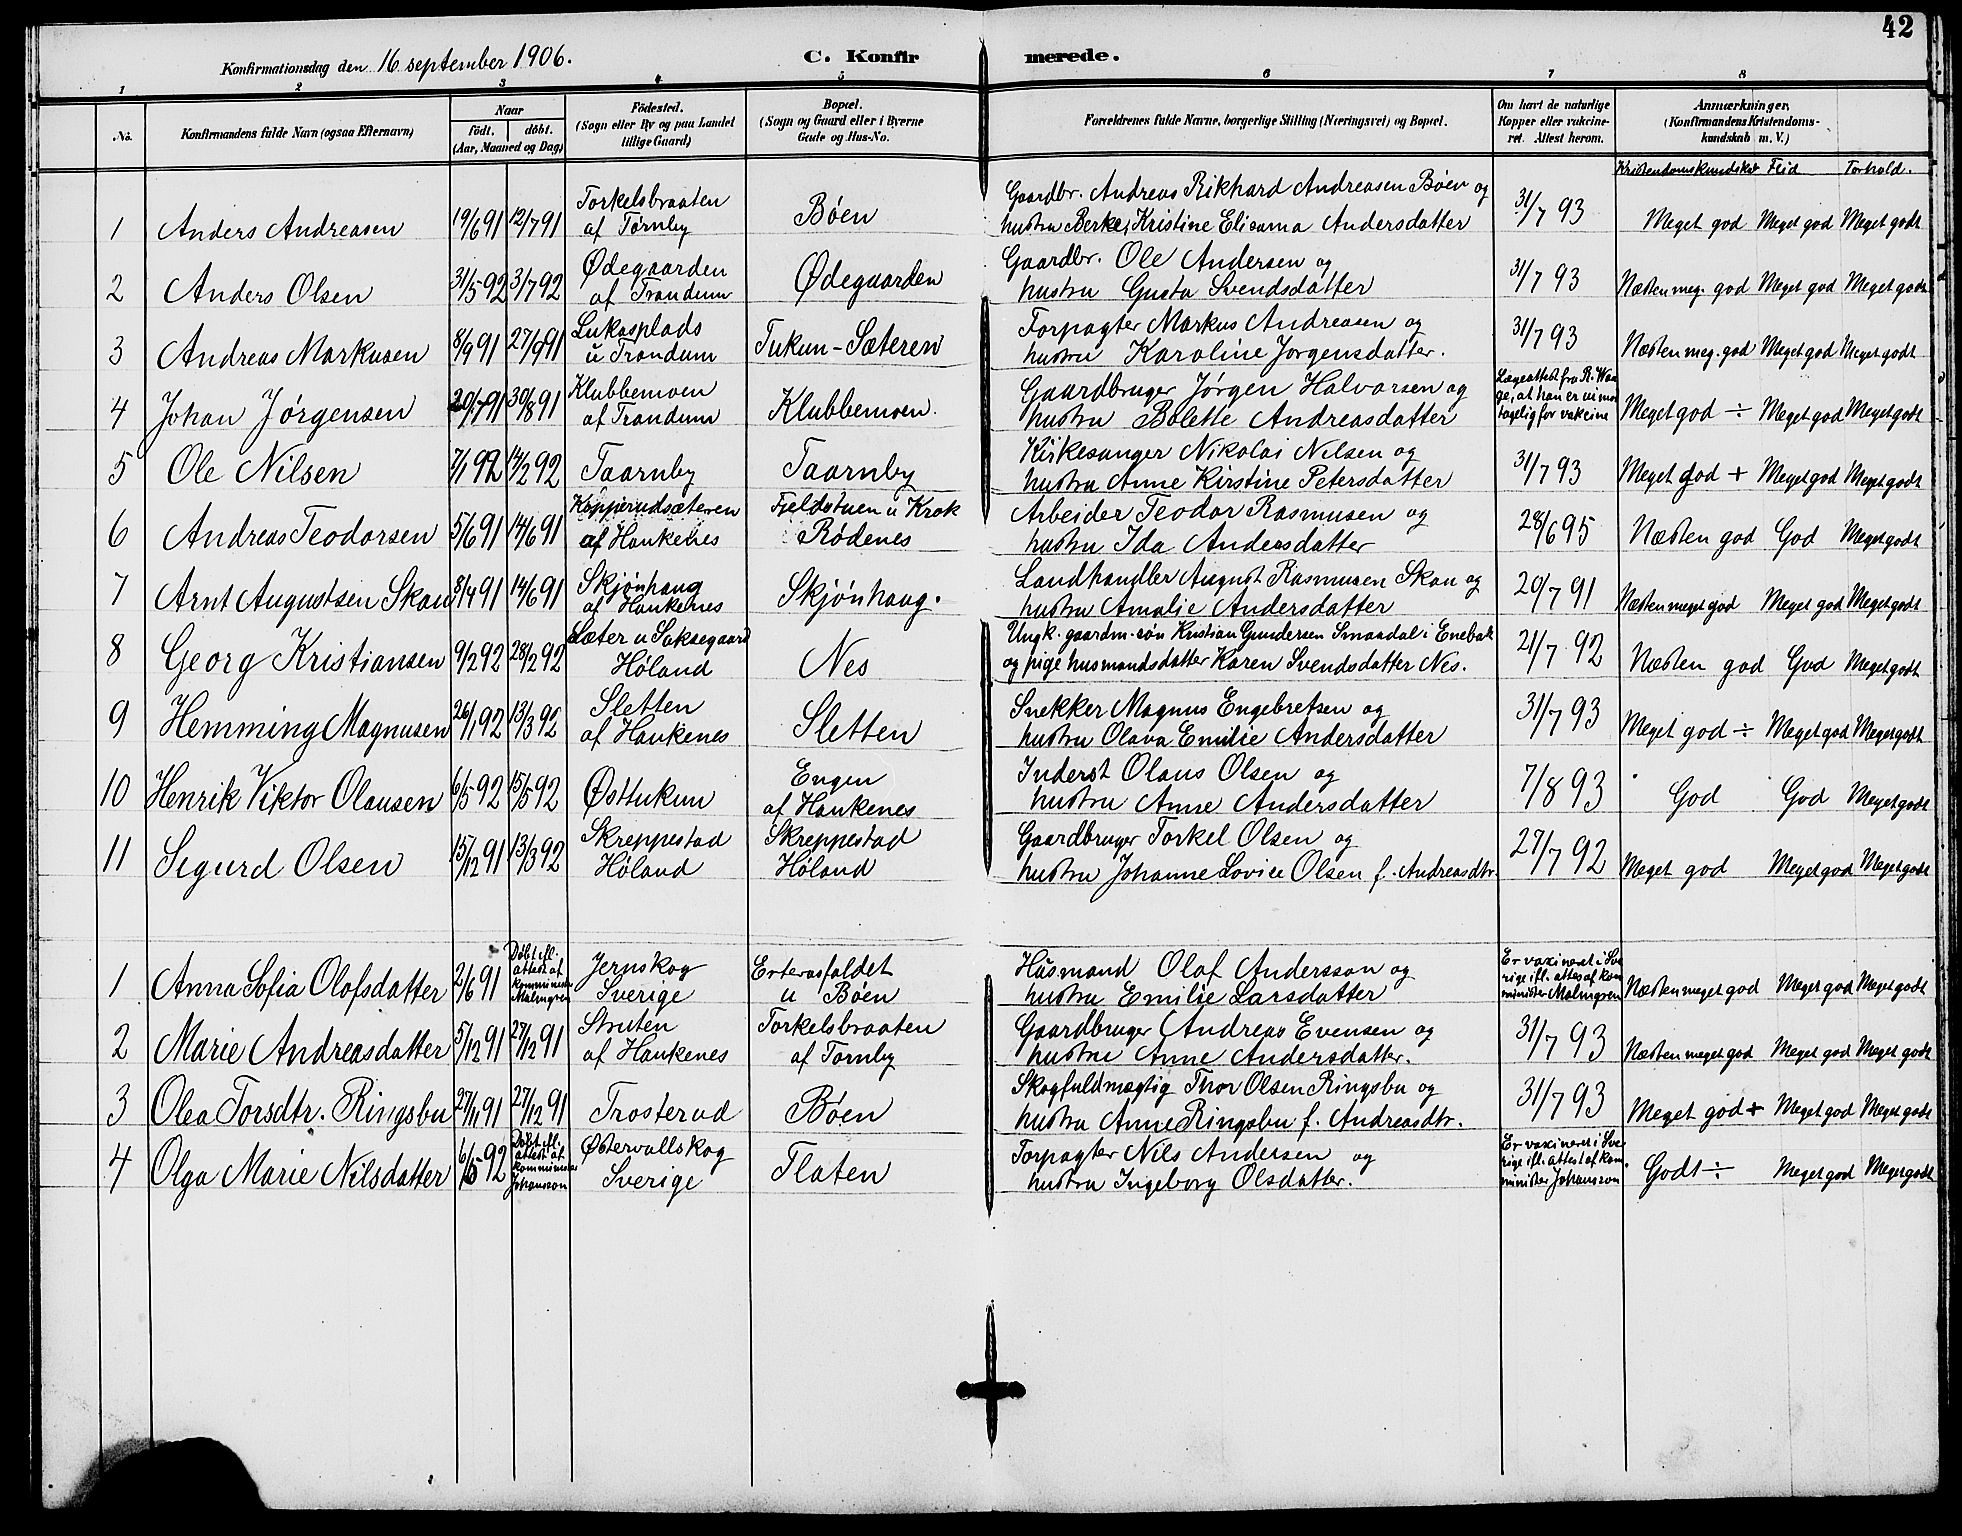 42
Konfirmationsdag den 16 september 1906.
C. Konfirmerede.
1 2 3 4 5 6 7 8
No.
Konfirmandens fulde Navn (ogsaa Efternavn)
Naar
født. døbt.
(Aar, Maaned og Dag)
Födested.
(Sogn eller By og paa Landet
tillige Gaard)
Bopæl.
(Sogn og Gaard eller i Byerne
Gade og Hus-No.
Forældrenes fulde Navne, borgerlige Stilling (Næringsvei) og Bopæl.
Om havt de naturlige
Kopper eller vakcine-
ret. Attest herom.
Anmærkninger,
(Konfirmandens Kristendoms-
kundskab m. V.)
Kristendomskundskab Flid Forhold.
1 Anders Andreasen 19/6 91 12/7 91 Torkelsbraaten
af Tørnby Bøen Gaardbr. Andreas Rikhard Andreasen Bøen og
hustru Kristine Elisama Andersdatter 31/7 93 Meget god Meget god Meget godt
2 Anders Olsen 31/5 92 3/7 92 Ødegaarden
af Trandum Ødegaarden Gaardbr. Ole Andersen og
hustru Gusta Svendsdatter 31/7 93 Næsten meg. god Meget god Meget godt
3 Andreas Markusen 8/9 91 27/9 91 Lukasplads
u Trandum Tukun-Sæteren Forpagter Markus Andreasen og
hustru Karoline Jørgensdatter. 31/7 93 Næsten meg. god Meget god Meget godt
4 Johan Jørgensen 20/7 91 30/8 91 Klubbemoen
af Trandum Klubbemoen. Gaardbruger Jørgen Halvorsen og
hustru Bolette Andreasdatter Lægeattest fra R. Wan
ge, at han er uimod
tagelig for vakcine Meget god ÷ Meget god Meget godt
5 Ole Nilsen 7/1 92 14/2 92 Taarnby Taarnby Kirkesanger Nikolai Nilsen og
hustru Anne Kirstine Petersdatter 31/7 93 Meget god + Meget god Meget godt
6 Andreas Teodorsen 5/6 91 14/6 91 Kopperudsæteren
af Hankenes Fjeldstuen u Krok
Rødenes Arbeider Teodor Rasmusen og
hustru Ida Andersdatter 28/6 95 Næsten god God Meget godt
7 Arnt Augustsen Skau 8/4 91 14/6 91 Skjønhaug
af Hankenes Skjønhaug. Landhandler August Rasmusen Skau og
hustru Amalie Andersdatter 20/7 91 Næsten meget god Meget god Meget godt
8 Georg Kristiansen 9/2 92 28/2 92 Sæter u Saksegaard
Høland Nes Ungk. gaardm.søn Kristian Gundersen Smaadal i Enebak
og pige husmandsdatter Karen Svendsdatter Nes. 21/7 92 Næsten god God Meget godt
9 Hemming Magnusen 26/1 92 13/3 92 Sletten
af Hankenes Sletten Snekker Magnus Engebretsen og
hustru Olava Emilie Andersdatter 31/7 93 Meget god ÷ Meget god Meget godt
10 Henrik Viktor Olausen 6/5 92 15/5 92 Østtukun Engen
af Hankenes Inderst Olaus Olsen og
hustru Anne Andersdatter 7/8 93 God God Meget godt
11 Sigurd Olsen 15/12 91 13/3 92 Skreppestad
Høland Skreppestad
Høland Gaardbruger Torkel Olsen og
hustru Johanne Lovise Olsen f. Andreasdtr. 27/7 92 Meget god Meget god Meget godt
1 Anna Sofia Olofsdatter 2/6 91 Døbt ifl.
attest af
komminister
Malmgren Jernskog
Sverige Esterasfaldet
u Bøen Husmand Olof Andersson og
hustru Emilie Larsdatter Er vaxineret i Sve
rige ifl. attest af kom
minister Malmgren Næsten meget god Meget god Meget godt
2 Marie Andreasdatter 5/12 91 27/12 91 Struten
af Hankenes Torkelsbraaten
af Tornby Gaardbruger Andreas Evensen og
hustru Anne Andersdatter. 31/7 93 Næsten meget god Meget god Meget godt
3 Olea Torsdtr. Ringsbu 27/11 91 27/12 91 Trosterud Bøen Skogfuldmægtig Thor Olsen Ringsbu og
hustru Anne Ringsbu f. Andreasdtr. 31/7 93 Meget god + Meget god Meget godt
4 Olga Marie Nilsdatter 6/5 92 Døbt ifl.
attest af
komminister
Johansson Østervallskog
Sverige Flaten Forpagter Nils Andersen og
hustru Ingeborg Olsdatter. Er vaxineret i Sve
rige ifl. attest af kom.
minister Johansson Godt ÷ Meget god Meget godt